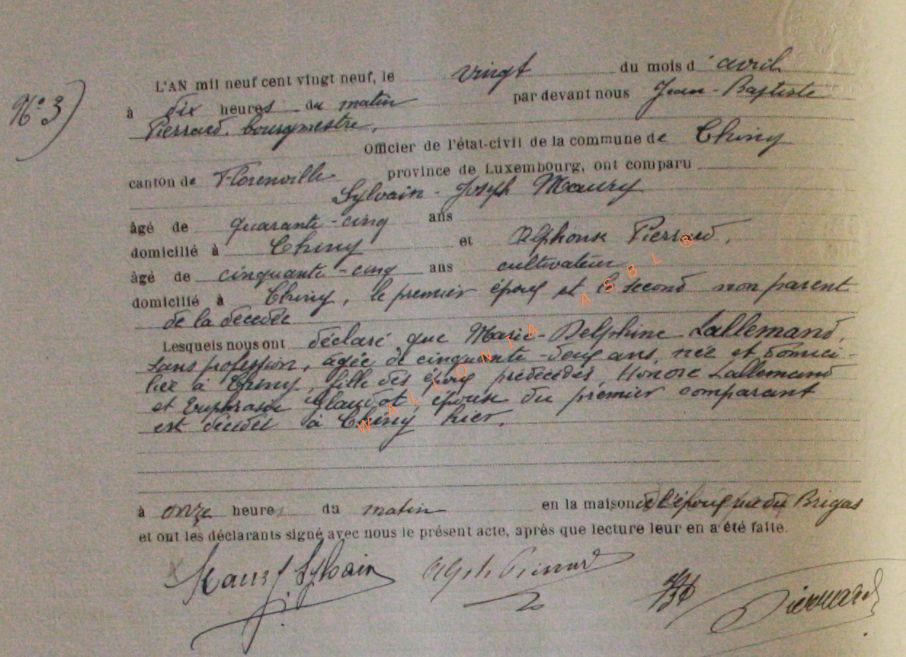 N° 3)
L'AN mil neuf cent vingt neuf, le vingt du mois d'avril
à dix heures du matin par devant nous Jean-Baptiste
Pierrard, bourgmestre,
Officier de l'état-civil de la commune de Chiny
canton de Florenville province de Luxembourg, ont comparu
Sylvain-Joseph Maury
âgé de quarante-cinq ans
domicilié à Chiny et Alphonse Pierrard,
âgé de cinquante-cinq ans cultivateur
domicilié à Chiny, le premier époux et le second non parent
de la décédée
Lesquels nous ont déclaré que Marie-Delphine Lallemand,
sans profession, âgée de cinquante-deux ans, née et domici-
liée à Chiny, fille des époux prédécédés Honoré Lallemand
et Euphrasie Claudot épouse du premier comparant
est décédée à Chiny hier,
à onze heures du matin en la maison de l'époux rue du Brigas
et ont les déclarants signé avec nous le présent acte, après que lecture leur en a été faite.
Maury Sylvain Alph Pierrard JB Pierrard
WALLONIA ASBL